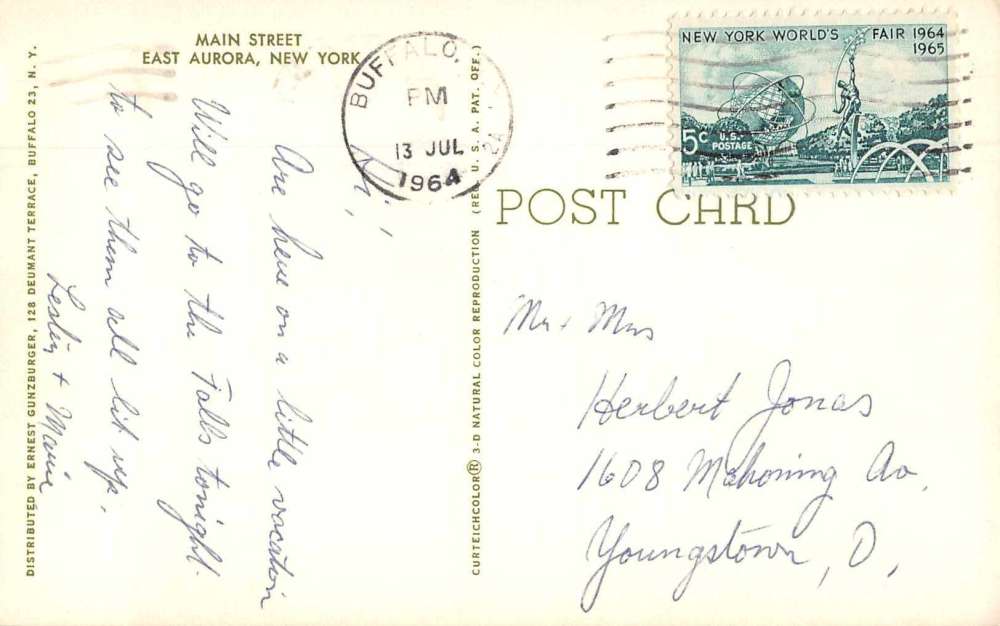 MAIN STREET
EAST AURORA, NEW YORK
BUFFALO, N.Y.
PM
13 JUL
1964
2A
NEW YORK WORLD'S FAIR 1964
1965
5c U.S.
POSTAGE
POST CARD
Hi,
Are here on a little vacation
Will go to the Falls tonight.
to see them all lit up.
Leslie + Marie
DISTRIBUTED BY ERNEST GUNZBURGER, 128 DEUMANT TERRACE, BUFFALO 23, N. Y.
CURTEICHCOLOR® 3-D NATURAL COLOR REPRODUCTION (REG. U. S. A. PAT. OFF.)
Mr + Mrs
Herbert Jonas
1608 Mahoning Av.
Youngstown, O,